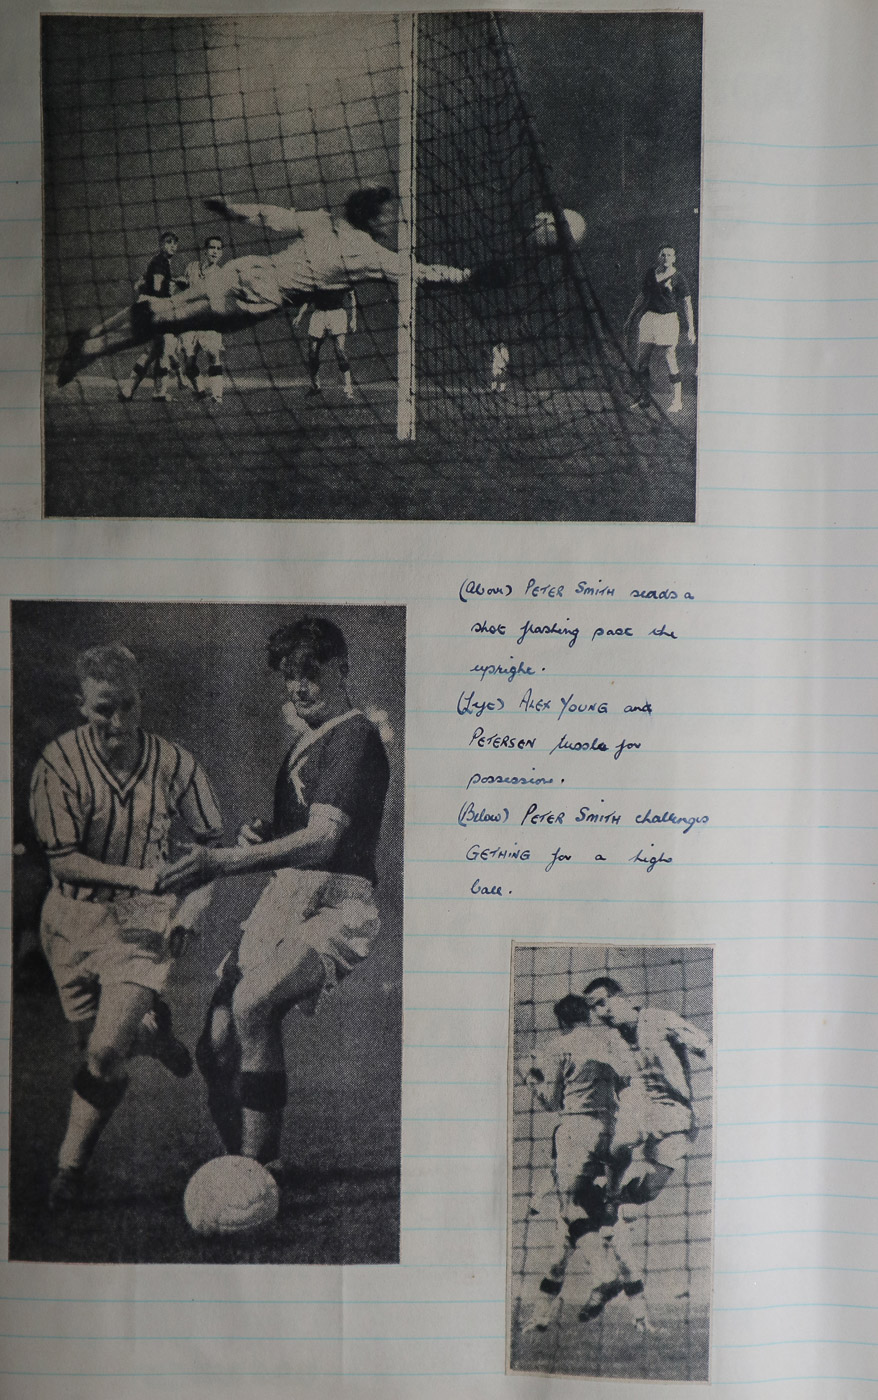 (Above) PETER SMITH sends a
shot flashing past the
upright.
(Left) ALEX YOUNG and
PETERSEN tussle for
possession.
(Below) PETER SMITH challenges
GETHING for a high
ball.